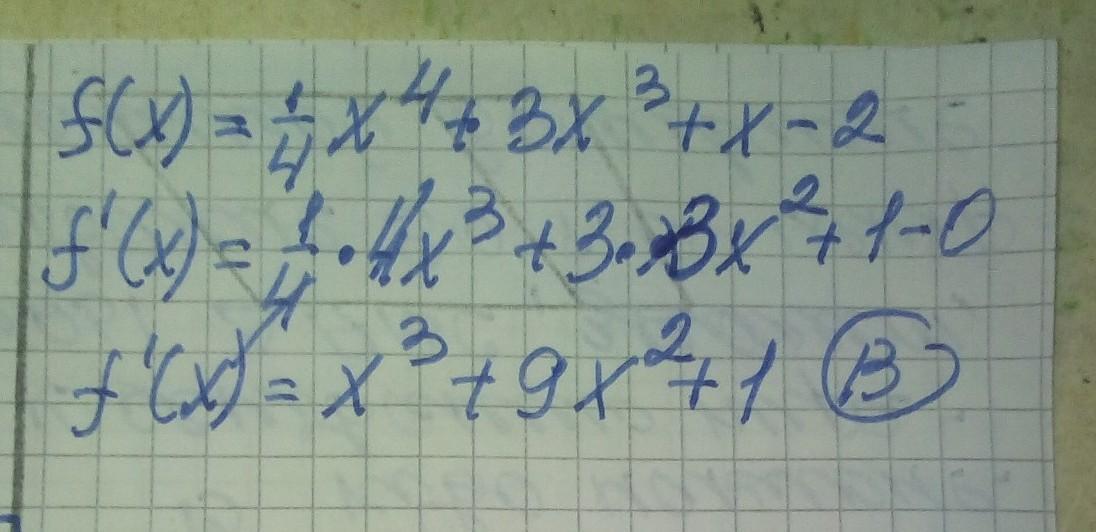 f(x) = 1/4 x⁴ + 3x³ + x - 2
f'(x) = 1/4 · 4x³ + 3 · 3x² + 1 - 0
f'(x) = x³ + 9x² + 1 B